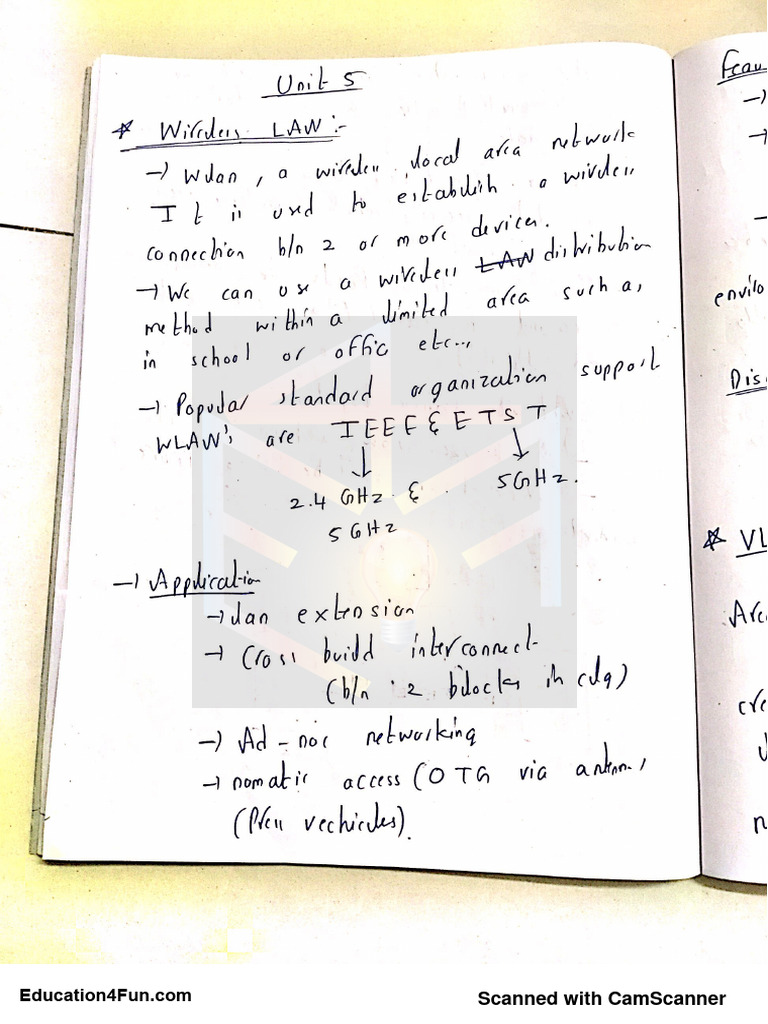 Unit 5
* Wireless LAN :-
→ Wlan, a wireless local area network
It is used to establish a wireless
connection b/n 2 or more devices.
→ We can use a wireless LAN distribution
method within a limited area such as
in school or office etc...
→ Popular standard organization support
WLAN's are IEEE & ETSI
↓ ↓
2.4 GHz & 5GHz.
5 GHz
→ Application
→ lan extension
→ Cross build interconnect
(b/n 2 blocks in clg)
→ Ad-hoc networking
→ nomatic access (OTG via antenna,
(Press vechicules).
Featu
→
→
→
enviro
Dis
* VL
Arc
cre
Education4Fun.com
Scanned with CamScanner